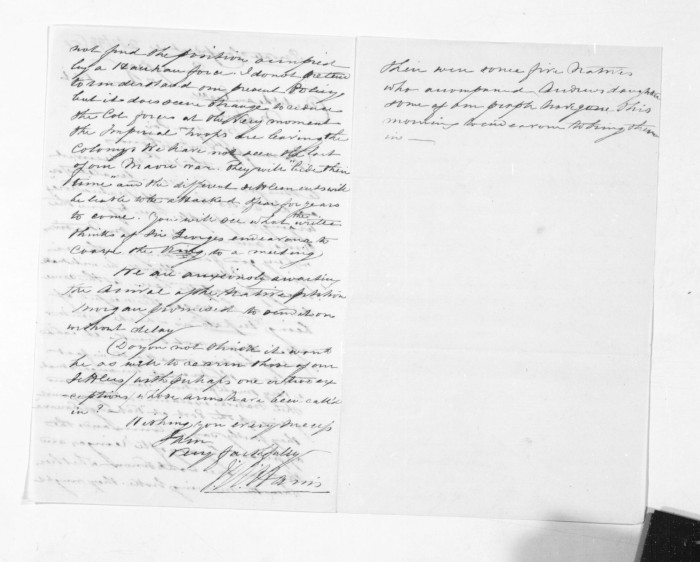 not find the position occupied
by a Hauhau force. I do not pretend
to understand our present Policy
but it does seem strange to reduce
the Col. forces at the very moment
the Imperial troops are leaving the
Colony. We have not seen the last
of our Maori war. They will bide their
time and the different settlements will
be liable to be attacked for years
to come. You will see what the writer
thinks of Sir Georges endeavours to
coax the King to a meeting
We are anxiously awaiting
the arrival of the Native petition
Morgan promised to send it on
without delay
Do you not think it would
be as well to rearm those of our
Settlers, with perhaps one or two ex
-ceptions, whose arms have been call'd
in?
Wishing you every success
I am
Very faithfully
J W Harris
There were some five Natives
who accompanied Andrews daughter
some of our people have gone this
morning to endeavour to bring them
in —